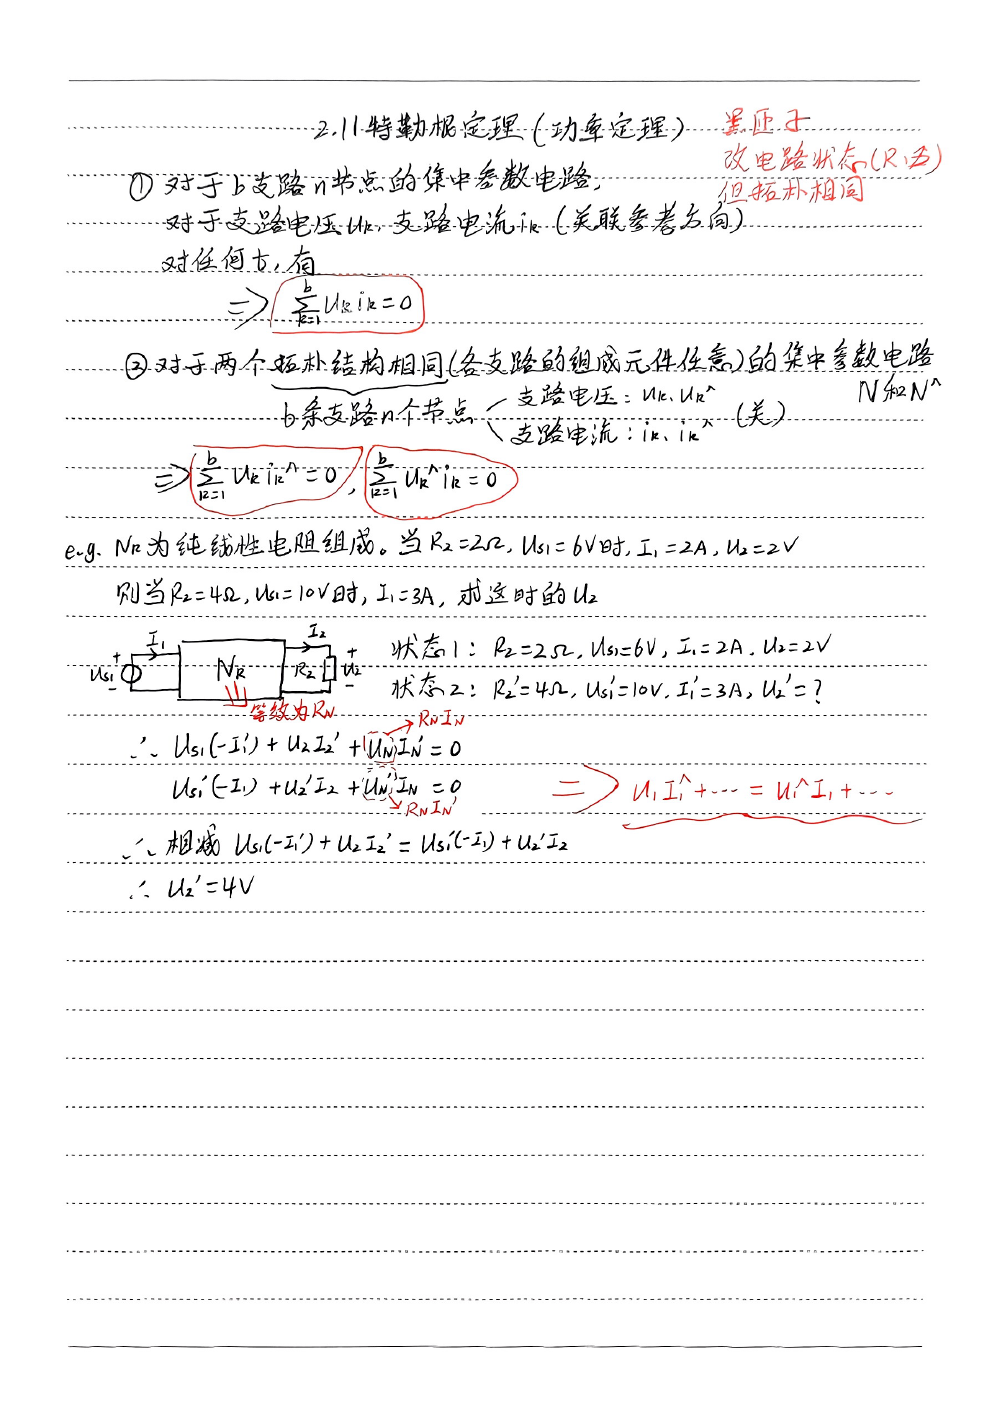 2.11 特勒根定理(功率定理)
黑匝子
改电路状态(R、吾)
但拓朴相同
① 对于b支路n节点的集中参数电路,
对于支路电压uk,支路电流ik(关联参考方向)
对任何t,有
⇒ ∑(k=1→b) uk ik = 0
② 对于两个拓朴结构相同(各支路的组成元件任意)的集中参数电路
N和N^
b条支路n个节点
支路电压:uk、uk^
支路电流:ik、ik^
(关)
⇒ ∑(k=1→b) uk ik^ = 0, ∑(k=1→b) uk^ ik = 0
e.g. NR为纯线性电阻组成。当R2=2Ω, Us1=6V时, I1=2A, U2=2V
则当R2=4Ω, Us1=10V时, I1=3A, 求这时的U2
I1 I2
Us1 + - NR R2 + U2 -
等效为RN
状态1: R2=2Ω, Us1=6V, I1=2A, U2=2V
状态2: R2'=4Ω, Us1'=10V, I1'=3A, U2'=?
RN IN
∴ Us1(-I1') + U2I2' + UN IN' = 0
Us1'(-I1) + U2'I2 + UN' IN = 0
RN IN'
⇒ U1I1^ + ··· = U1^I1 + ···
∴ 相减 Us1(-I1') + U2I2' = Us1'(-I1) + U2'I2
∴ U2' = 4V